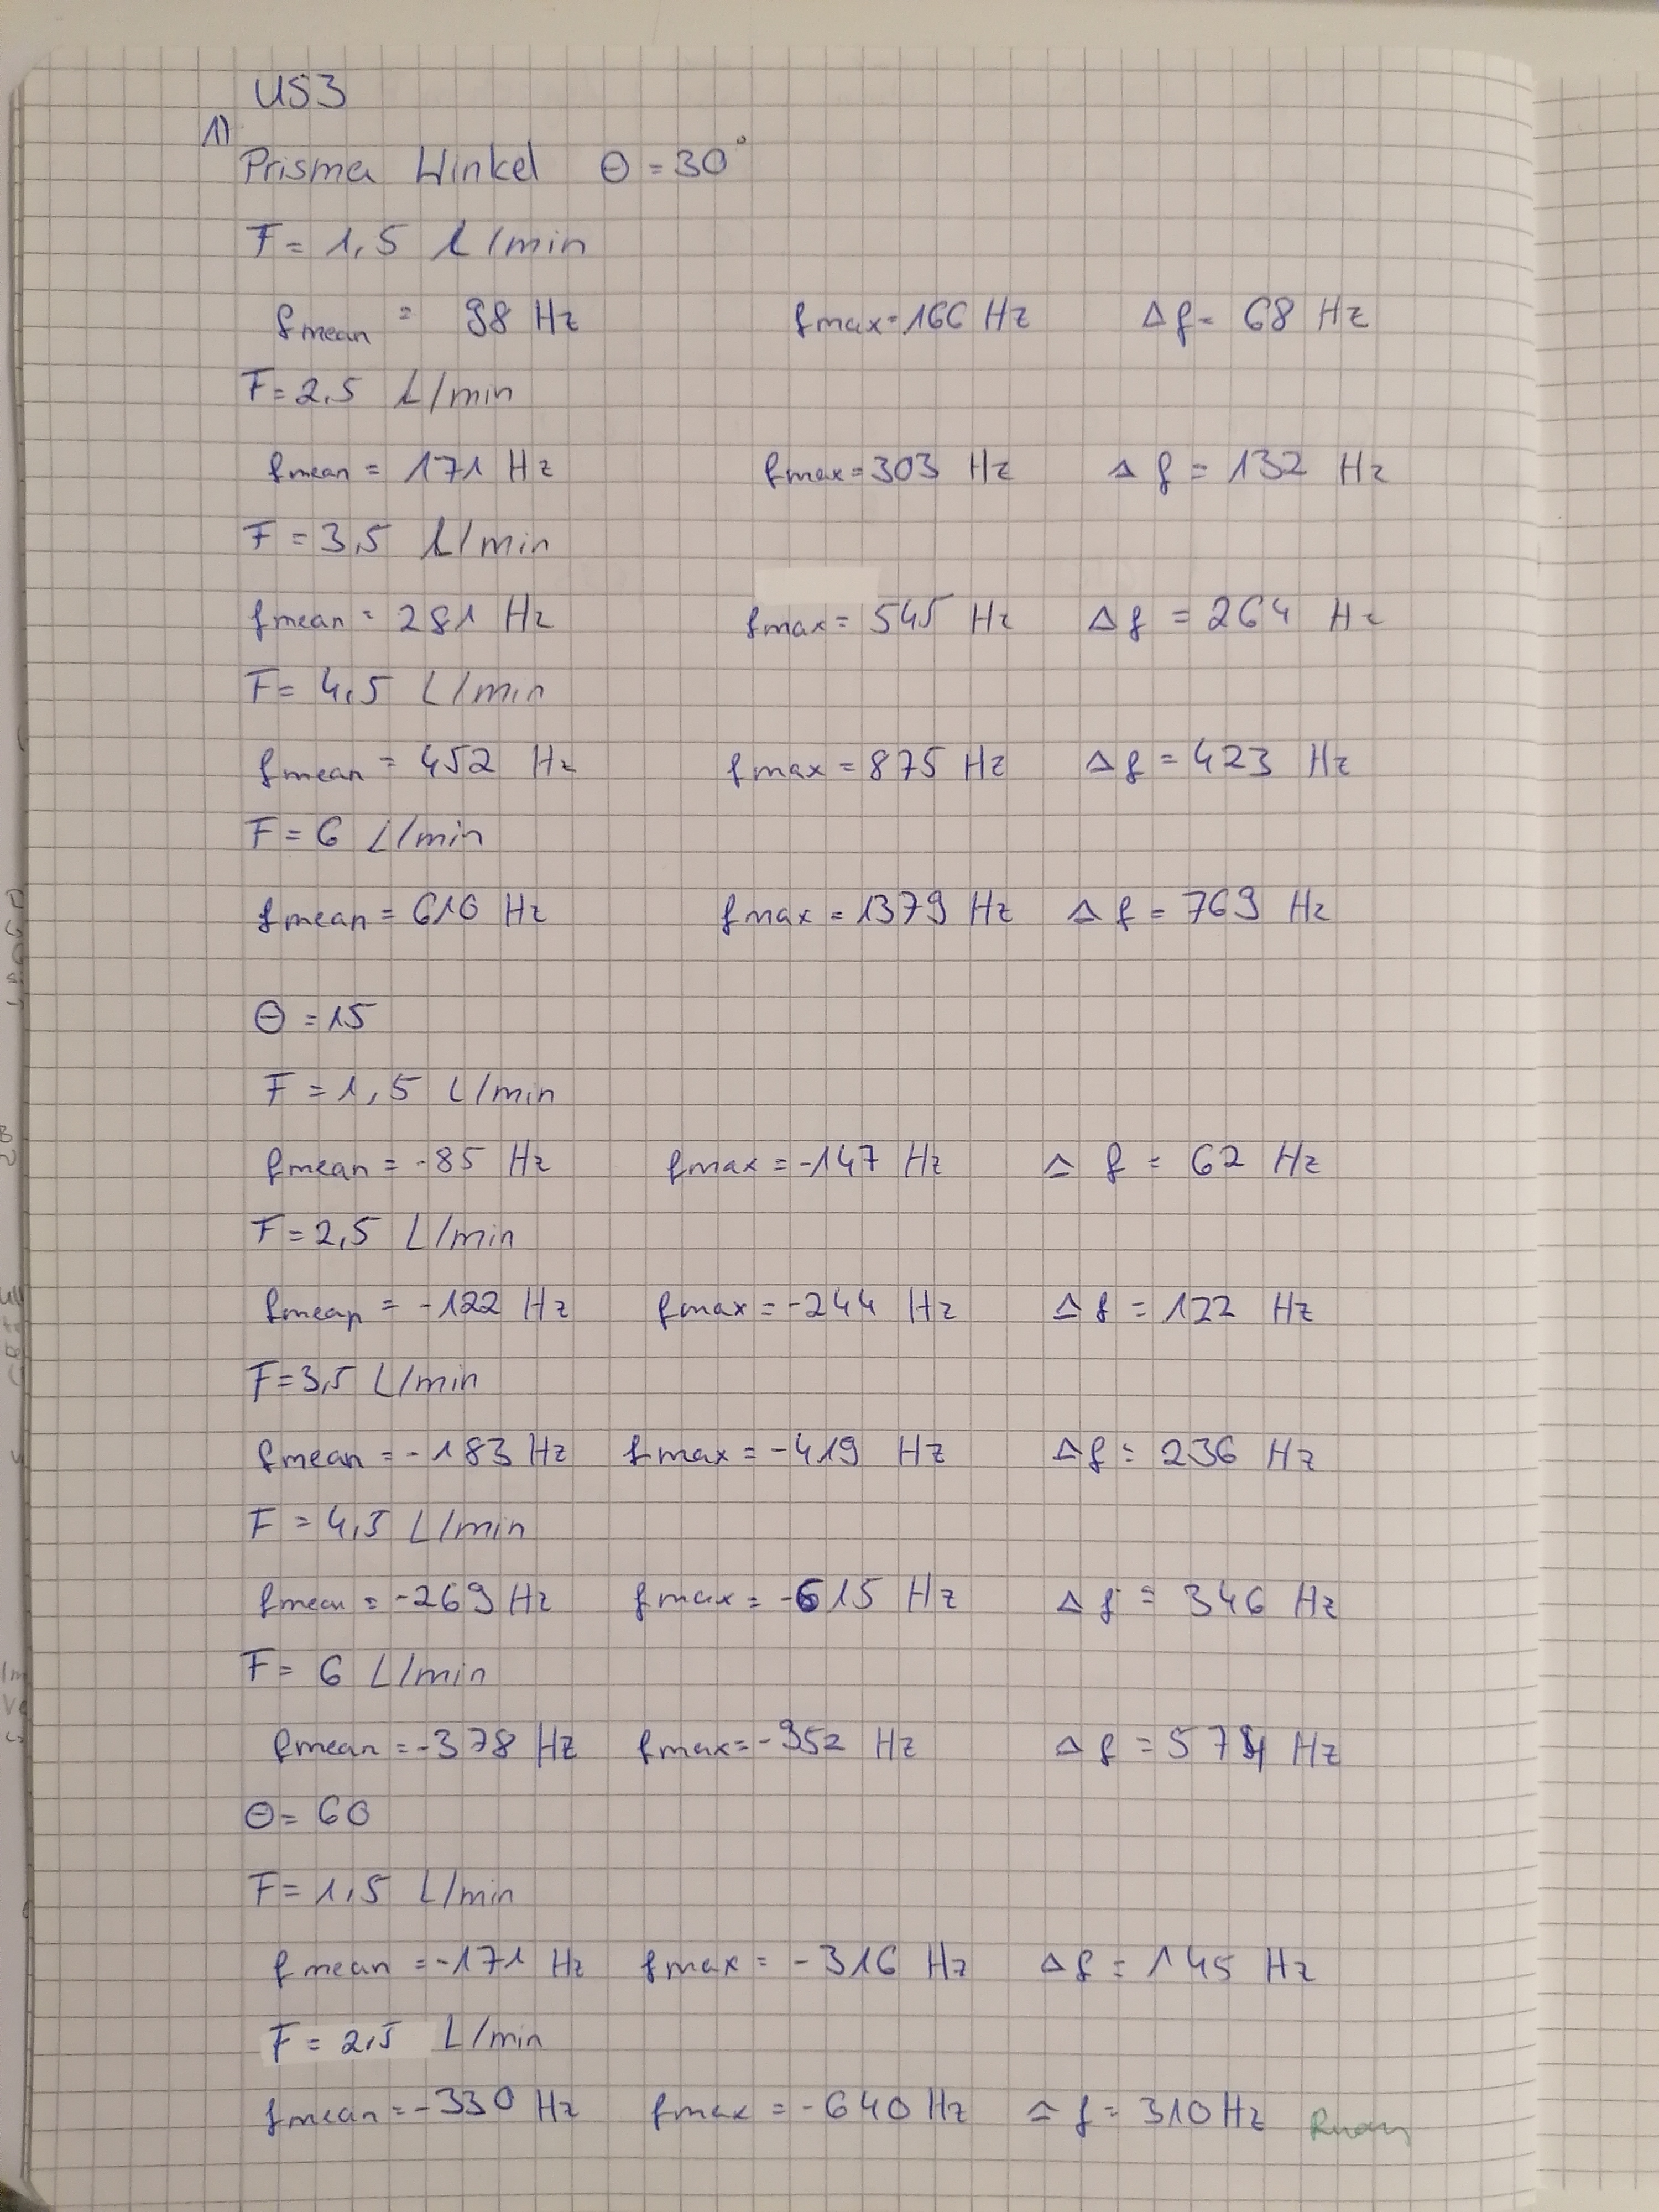 US3
1)
Prisma Winkel Θ = 30°
F = 1,5 L/min
fmean = 98 Hz fmax = 166 Hz Δf = 68 Hz
F = 2,5 L/min
fmean = 171 Hz fmax = 303 Hz Δf = 132 Hz
F = 3,5 L/min
fmean = 281 Hz fmax = 545 Hz Δf = 264 Hz
F = 4,5 L/min
fmean = 452 Hz fmax = 875 Hz Δf = 423 Hz
F = 6 L/min
fmean = 610 Hz fmax = 1379 Hz Δf = 769 Hz
Θ = 15
F = 1,5 L/min
fmean = -85 Hz fmax = -147 Hz Δf = 62 Hz
F = 2,5 L/min
fmean = -122 Hz fmax = -244 Hz Δf = 122 Hz
F = 3,5 L/min
fmean = -183 Hz fmax = -419 Hz Δf = 236 Hz
F = 4,5 L/min
fmean = -269 Hz fmax = -615 Hz Δf = 346 Hz
F = 6 L/min
fmean = -378 Hz fmax = -952 Hz Δf = 574 Hz
Θ = 60
F = 1,5 L/min
fmean = -171 Hz fmax = -316 Hz Δf = 145 Hz
F = 2,5 L/min
fmean = -330 Hz fmax = -640 Hz Δf = 310 Hz